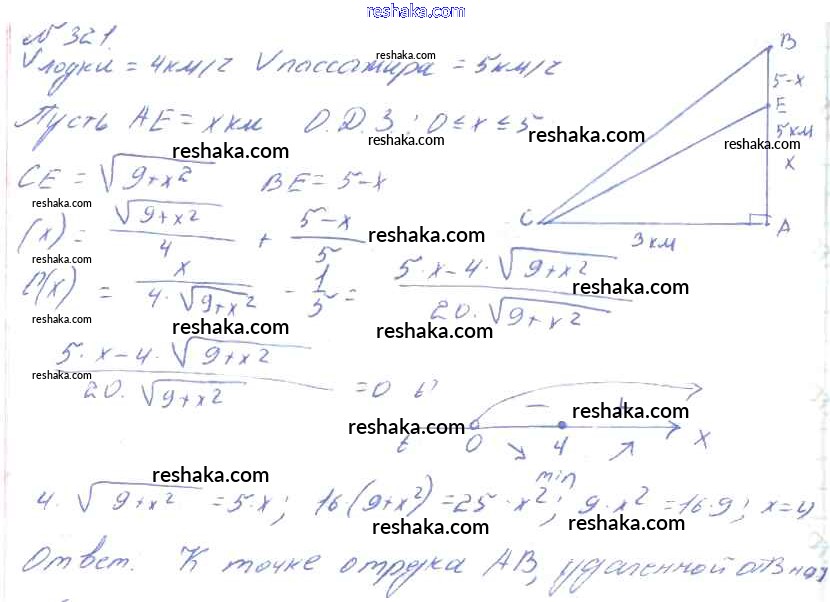 reshaka.com
№ 321.
Vлодки = 4км/ч Vпассажира = 5км/ч
reshaka.com
B
5-x
E
5км
x
C
3км
A
reshaka.com
Пусть AE = x км О.Д.З.: 0 ≤ x ≤ 5
reshaka.com
reshaka.com
CE = √9+x² BE = 5-x
reshaka.com
(x) = √9+x² / 4 + (5-x) / 5
reshaka.com
reshaka.com
(x) = x / (4·√9+x²) - 1/5 = (5·x-4·√9+x²) / (20·√9+x²)
reshaka.com
reshaka.com
reshaka.com
reshaka.com
(5·x-4·√9+x²) / (20·√9+x²) = 0 t'
reshaka.com
reshaka.com
reshaka.com
- +
t 0 ↘ 4 ↗ x
min
reshaka.com
4·√9+x² = 5·x; 16(9+x²) = 25·x²; 9·x² = 16·9; x=4
reshaka.com
reshaka.com
Ответ: К точке отрезка AB, удаленной от B на